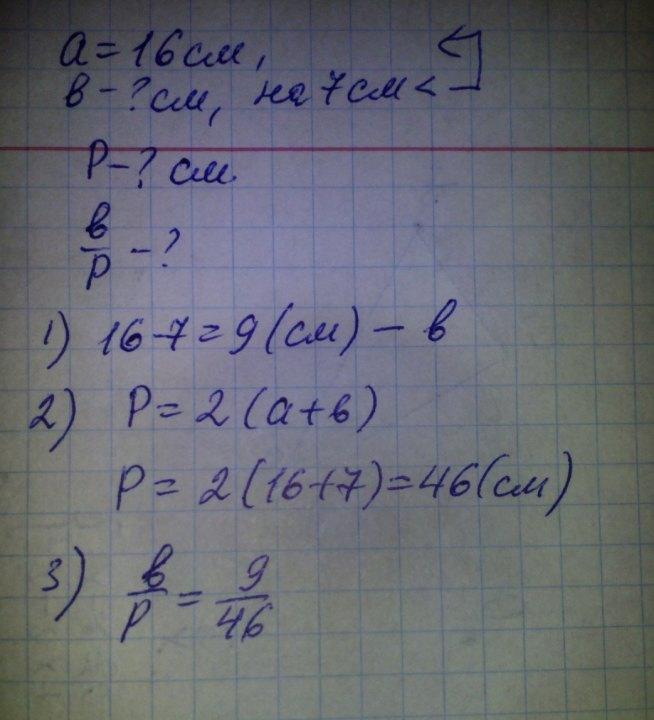 a = 16 см,
в - ? см, на 7 см <
P - ? см.
в/P - ?
1) 16-7=9(см) - в
2) P = 2(a+в)
P = 2(16+7)=46(см)
3) в/P = 9/46